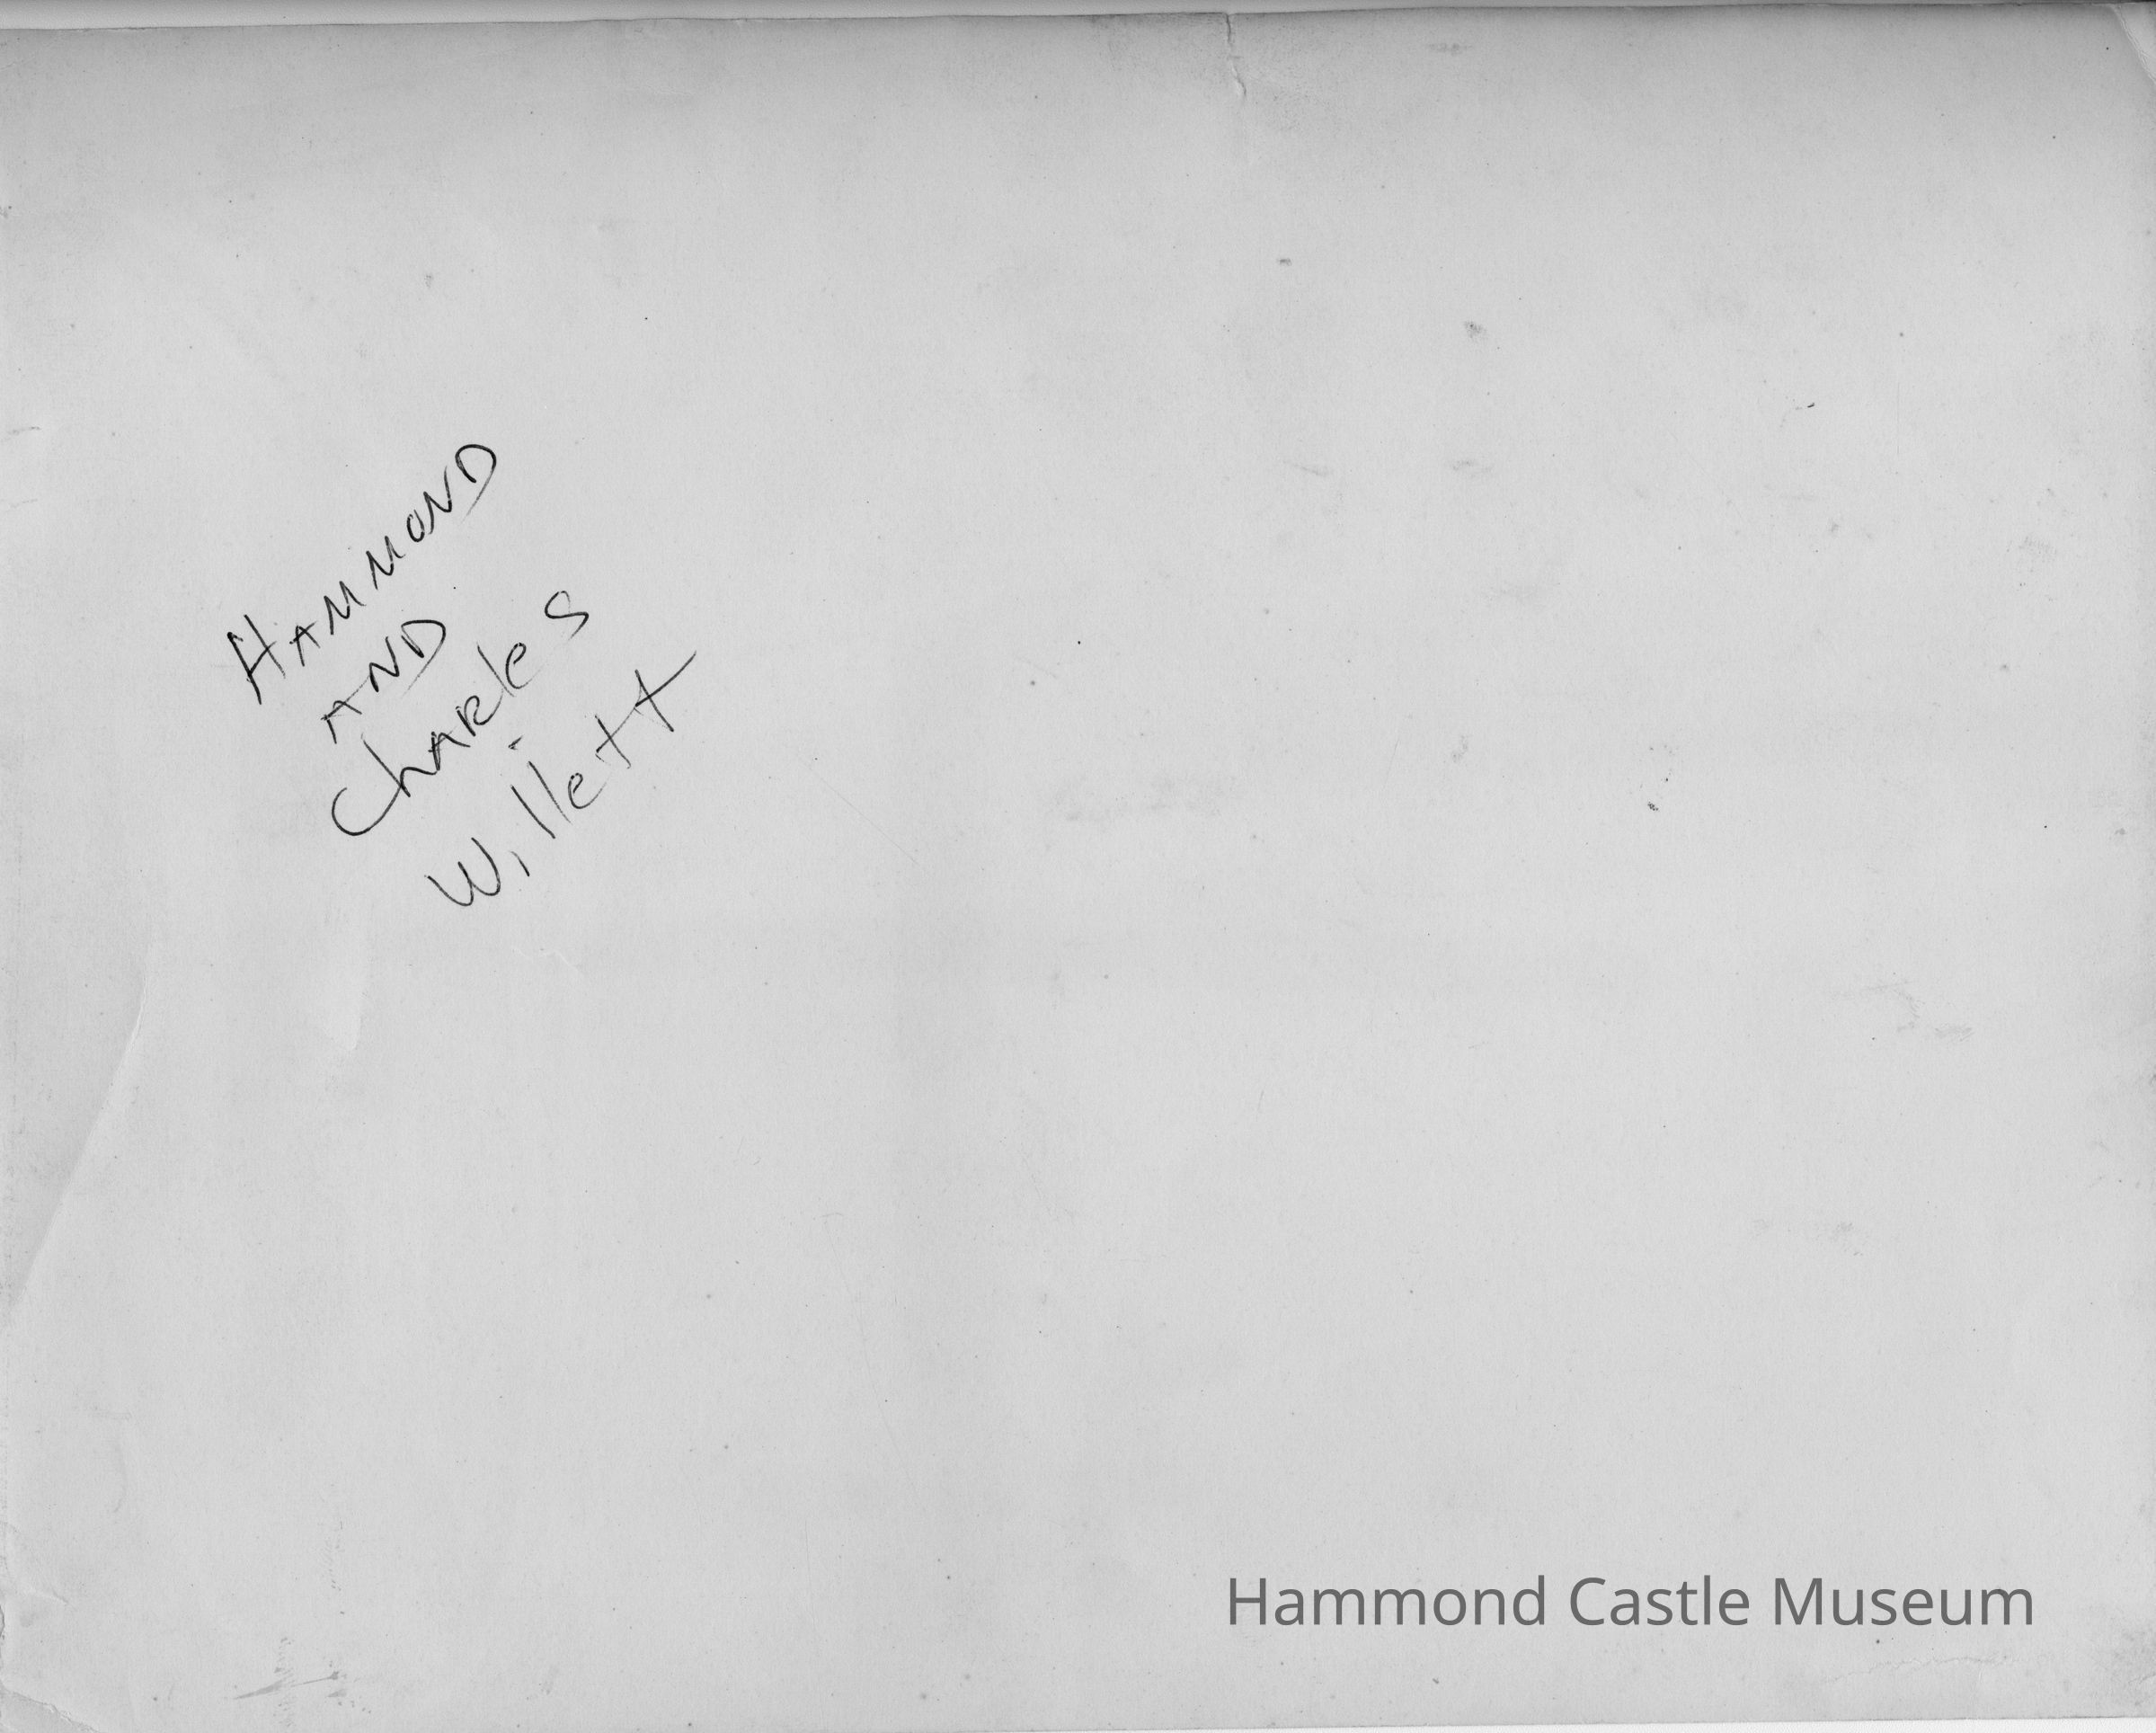 HAMMOND
AND
ChARles
Willett
Hammond Castle Museum